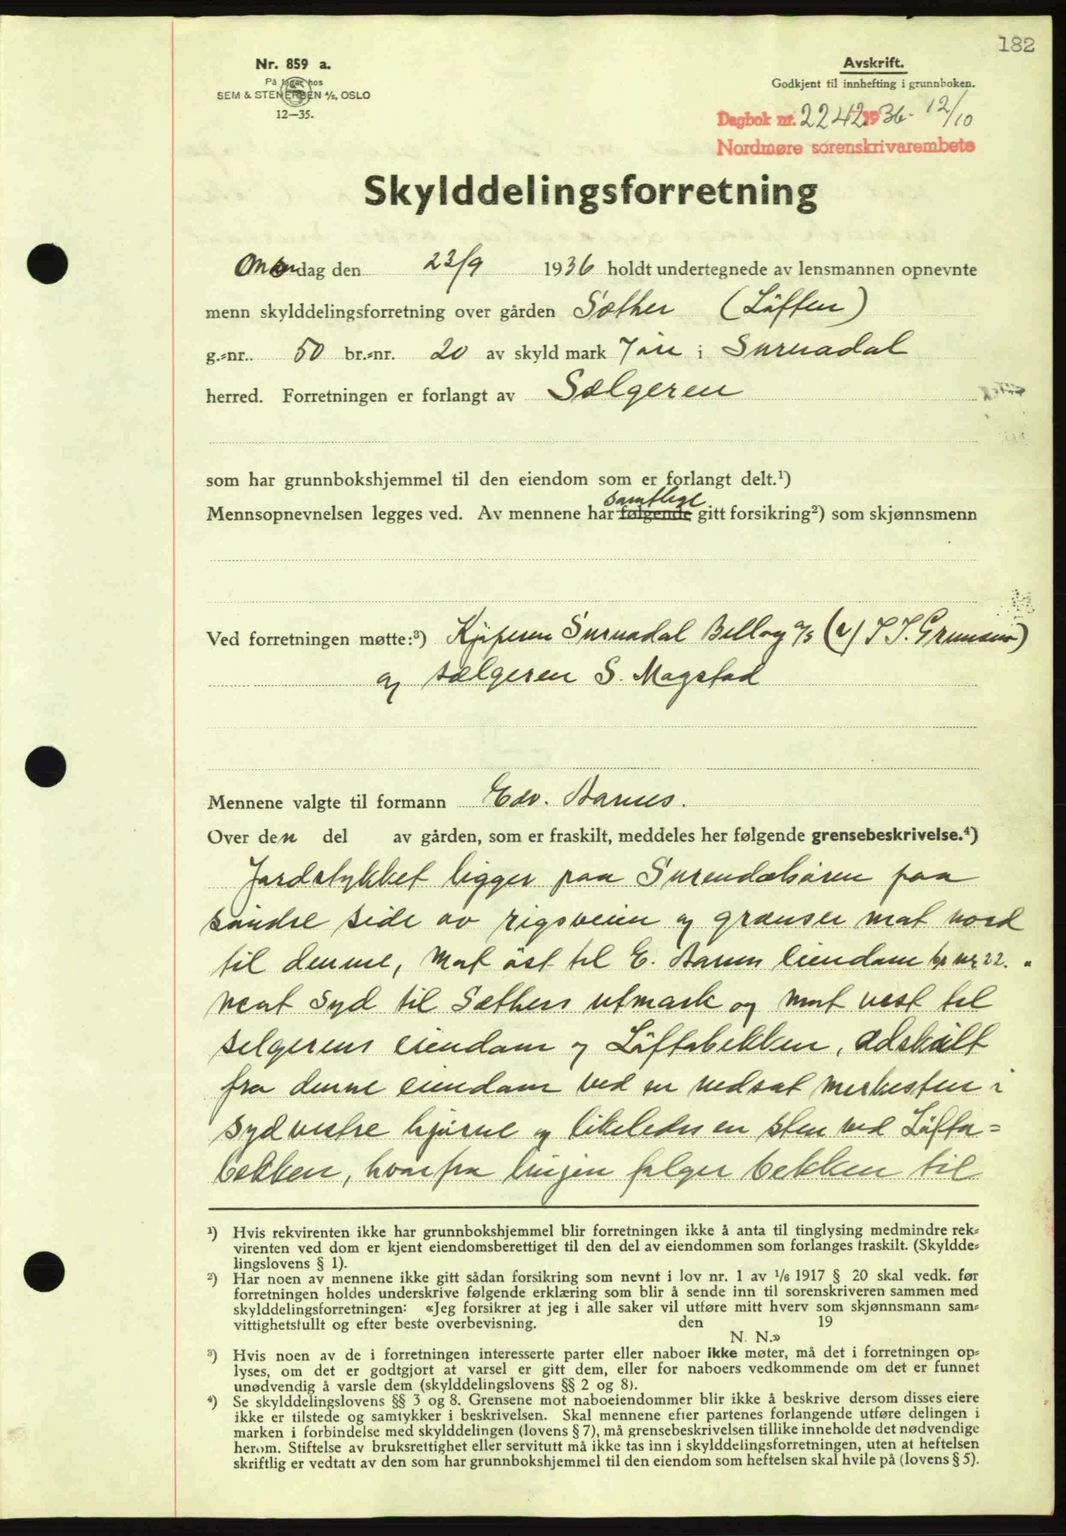 182
Nr. 859 a.
På lager hos
SEM & STENERSEN A/S, OSLO
12—35.
Avskrift.
Godkjent til innhefting i grunnboken.
Dagbok nr. 2242 1936- 12/10
Nordmøre sorenskrivarembete
Skylddelingsforretning
Onsdag den 23/9 1936 holdt undertegnede av lensmannen opnevnte
menn skylddelingsforretning over gården Sæther (Løften)
g.-nr. 50 br.-nr. 20 av skyld mark 7 øre i Surnadal
herred. Forretningen er forlangt av Sælgeren
som har grunnbokshjemmel til den eiendom som er forlangt delt.¹)
samtlige
Mennsopnevnelsen legges ved. Av mennene har følgende gitt forsikring²) som skjønnsmenn
Ved forretningen møtte:³) Kjøperen Surnadal Billag A/S (v/
og sælgeren S. Mogstad
Mennene valgte til formann Edv. Aarnes.
Over den del av gården, som er fraskilt, meddeles her følgende grensebeskrivelse.⁴)
Jordstykket ligger paa Surendalsøren paa
søndre side av rigsveien og grænser mot nord
til denne, mot øst til E. Aarnes eiendom br nr 22.
mot syd til Sæthers utmark og mot vest til
selgerens eiendom og Løftabekken, adskilt
fra denne eiendom ved en nedsat merkesten i
sydvestre hjørne og likeledes en sten ved Løfta=
bekken, hvorfra linjen følger bekken til
¹) Hvis rekvirenten ikke har grunnbokshjemmel blir forretningen ikke å anta til tinglysing medmindre rek-
virenten ved dom er kjent eiendomsberettiget til den del av eiendommen som forlanges fraskilt. (Skyldde-
lingslovens § 1).
²) Har noen av mennene ikke gitt sådan forsikring som nevnt i lov nr. 1 av 1/6 1917 § 20 skal vedk. før
forretningen holdes underskrive følgende erklæring som blir å sende inn til sorenskriveren sammen med
skylddelingsforretningen: «Jeg forsikrer at jeg i alle saker vil utføre mitt hverv som skjønnsmann sam-
vittighetsfullt og efter beste overbevisning. den 19
N. N.»
³) Hvis noen av de i forretningen interesserte parter eller naboer ikke møter, må det i forretningen op-
lyses, om det er godtgjort at varsel er gitt dem, eller for naboers vedkommende om det er funnet
unødvendig å varsle dem (skylddelingslovens §§ 2 og 8).
⁴) Se skylddelingslovens §§ 3 og 8. Grensene mot naboeiendommer blir ikke å beskrive dersom disses eiere
ikke er tilstede og samtykker i beskrivelsen. Skal mennene efter partenes forlangende utføre delingen i
marken i forbindelse med skylddelingen (lovens § 7), må grensebeskrivelsen tillike inneholde det nødvendige
herom. Stiftelse av bruksrettighet eller servitutt må ikke tas inn i skylddelingsforretningen, uten at heftelsen
skriftlig er vedtatt av den som har grunnbokshjemmel til den eiendom som heftelsen skal hvile på (lovens § 5).